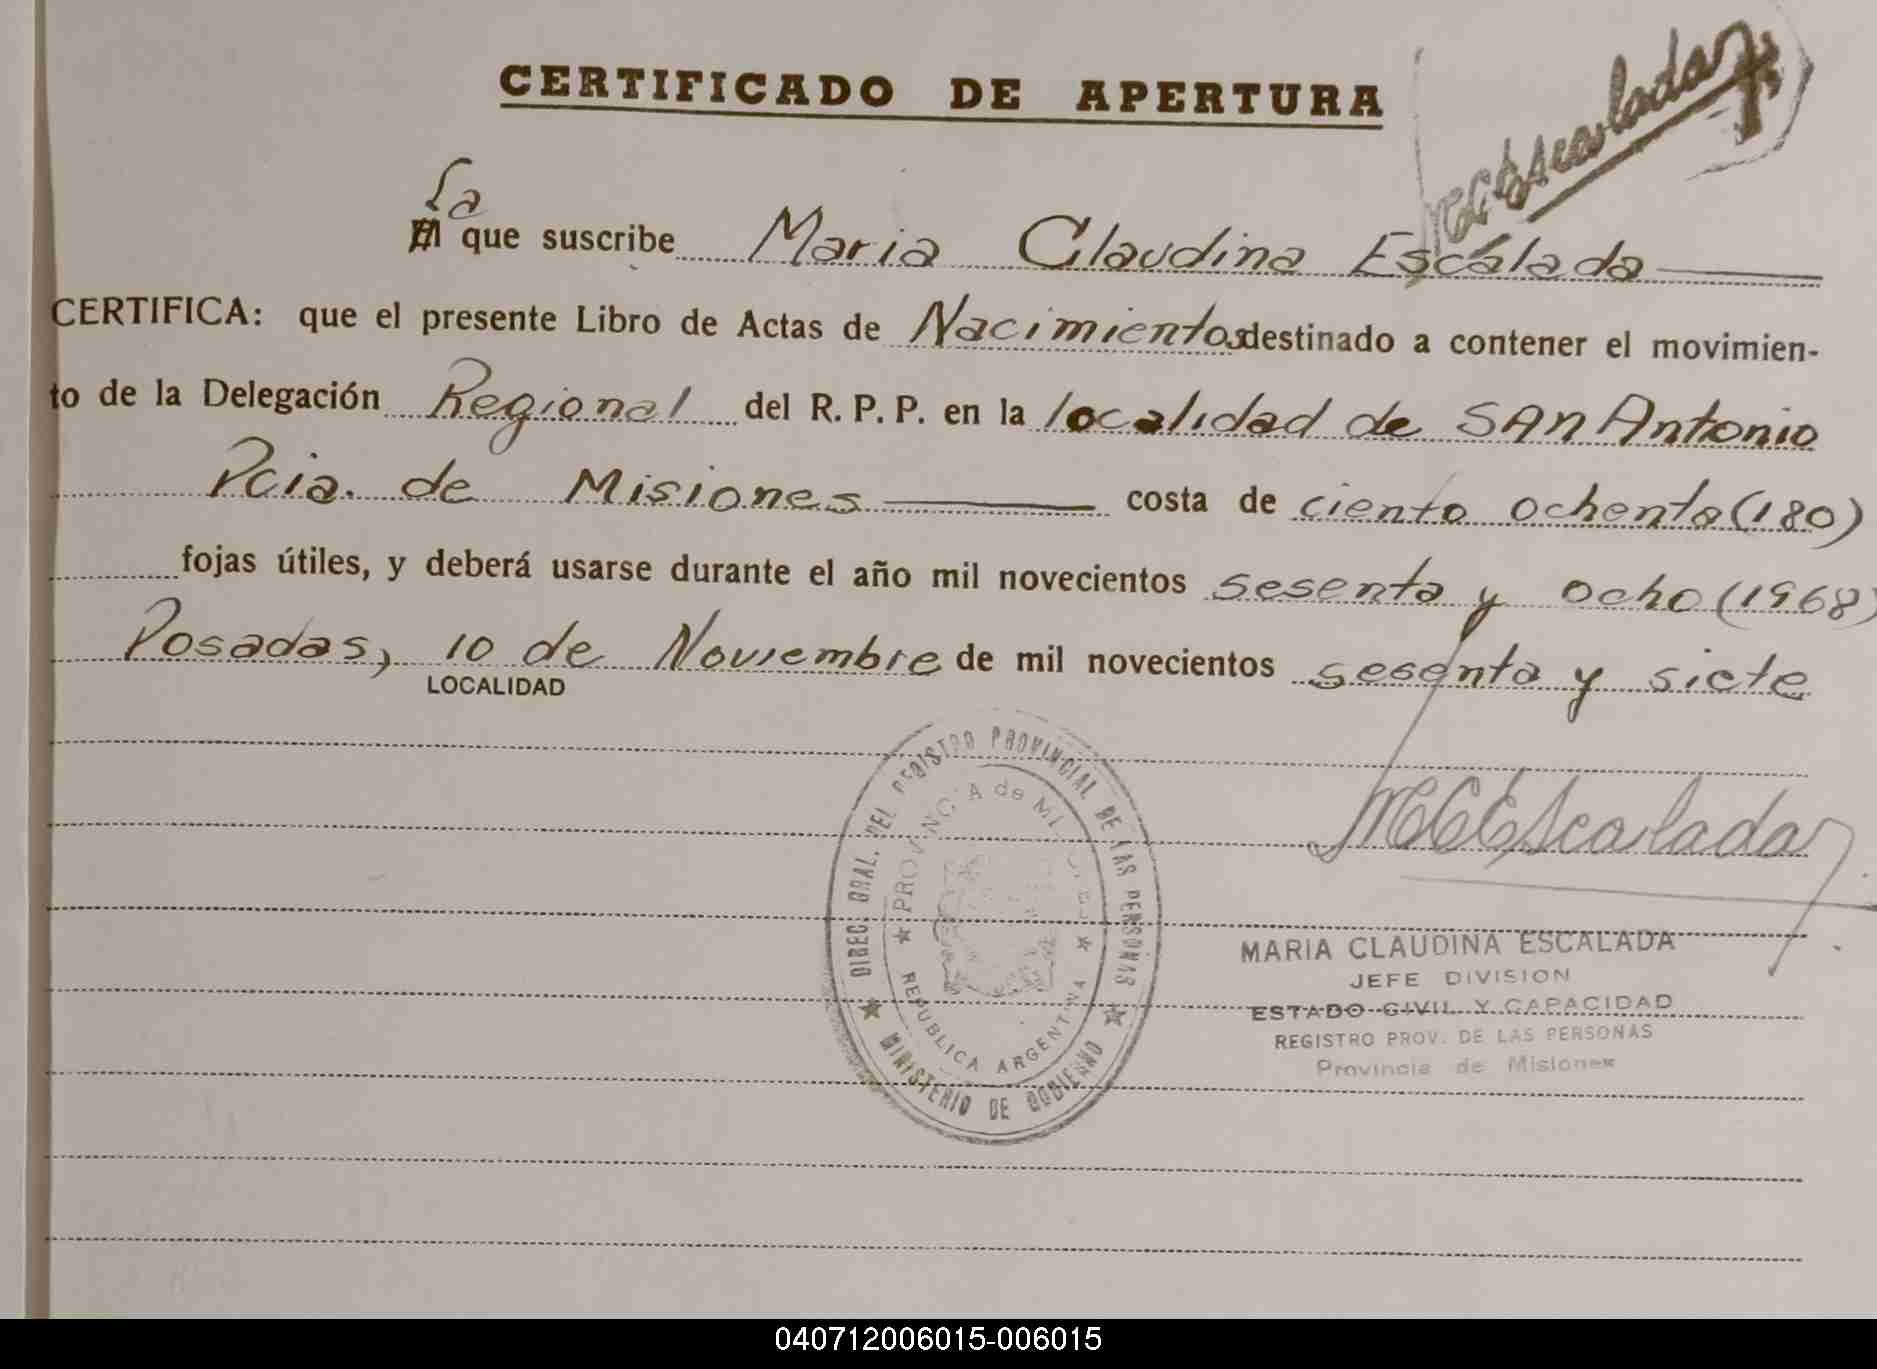 CERTIFICADO DE APERTURA
MCEscalada
La
El que suscribe Maria Claudina Escalada
CERTIFICA: que el presente Libro de Actas de Nacimientos destinado a contener el movimien-
to de la Delegación Regional del R. P. P. en la localidad de SAn Antonio
Pcia. de Misiones costa de ciento ochenta (180)
fojas útiles, y deberá usarse durante el año mil novecientos sesenta y ocho (1968)
Posadas, 10 de Noviembre de mil novecientos sesenta y siete
LOCALIDAD
DIREC. GRAL. DEL REGISTRO PROVINCIAL DE LAS PERSONAS
PROVINCIA de MISIONES
REPUBLICA ARGENTINA
MINISTERIO DE GOBIERNO
MCEscalada
MARIA CLAUDINA ESCALADA
JEFE DIVISION
ESTADO CIVIL Y CAPACIDAD
REGISTRO PROV. DE LAS PERSONAS
Provincia de Misiones
040712006015-006015